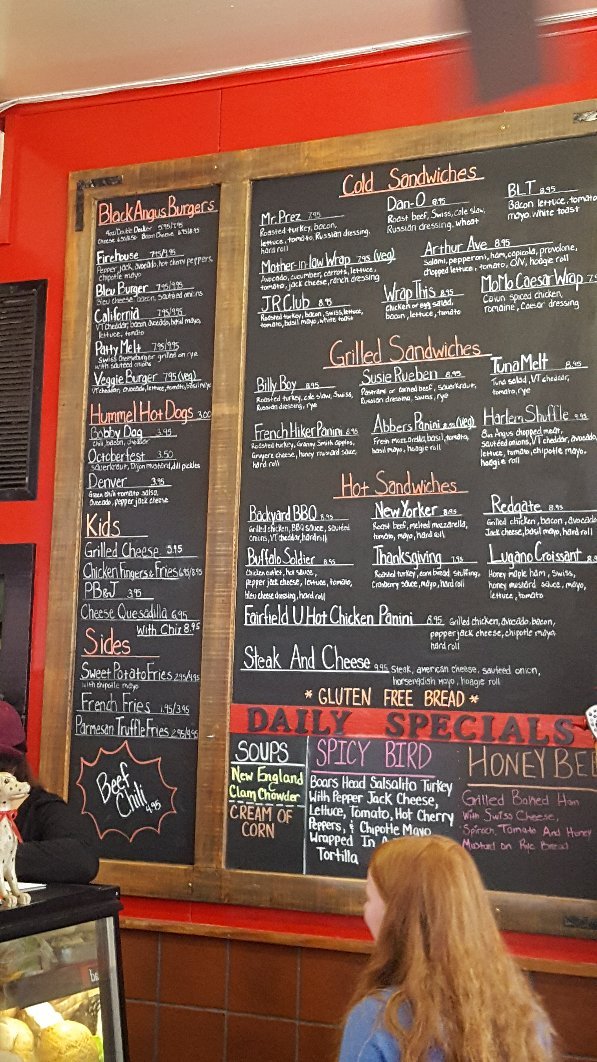 Black Angus Burgers
Firehouse 7.95/9.95
Pepper jack, avocado, hot cherry peppers,
chipotle mayo
Bleu Burger 7.95/9.95
Bleu cheese, bacon, sauteed onions
California 7.95/9.95
VT cheddar, bacon, avocado, basil mayo,
lettuce, tomato
Patty Melt 7.95/9.95
Swiss cheeseburger grilled on rye
with sauteed onions
Veggie Burger 7.95 (veg)
VT cheddar, avocado, lettuce, tomato,
Hummel Hot Dogs 3.00
Bobby Dog 3.95
Chili, bacon, cheddar
Octoberfest 3.50
Sauerkraut, Dijon mustard, dill pickles
Denver 3.95
Green chili tomato salsa,
avocado, pepper jack cheese
Kids
Grilled Cheese 5.15
Chicken Fingers & Fries 6.95/8.95
PB&J 3.95
Cheese Quesadilla 6.95
With Chix 8.95
Sides
Sweet Potato Fries 2.95/4.95
with chipotle mayo
French Fries 1.95/3.95
Parmesan Truffle Fries 2.95/4.95
Beef
Chili 4.95
Cold Sandwiches
Mr. Prez 7.95
Roasted turkey, bacon,
lettuce, tomato, Russian dressing,
hard roll
Dan-O 8.95
Roast beef, Swiss, cole slaw,
Russian dressing, wheat
BLT 8.95
Bacon lettuce, tomato
mayo, white toast
Mother-in-law Wrap 7.95 (veg)
Avocado, cucumber, carrots, lettuce,
tomato, jack cheese, ranch dressing
Arthur Ave 8.95
Salami, pepperoni, ham, capicola, provolone,
chopped lettuce, tomato, O/V, hoagie roll
JR Club 8.95
Roasted turkey, bacon, swiss, lettuce,
tomato, basil mayo, white toast
Wrap This 8.95
Chicken or egg salad,
bacon, lettuce, tomato
MoMo Caesar Wrap
Cajun spiced chicken,
romaine, Caesar dressing
Grilled Sandwiches
Billy Boy 8.95
Roasted turkey, cole slaw, Swiss,
Russian dressing, rye
Susie Rueben 8.95
Pastrami or corned beef, sauerkraut,
Russian dressing, swiss, rye
Tuna Melt 8.95
Tuna salad, VT cheddar,
tomato, rye
French Hiker Panini 8.95
Roasted turkey, Granny Smith apples,
Gruyere cheese, honey mustard sauce,
hard roll
Abbers Panini (veg)
Fresh mozzarella, basil, tomato,
basil mayo, hoagie roll
Harlem Shuffle 9.95
Angus chopped meat,
sauteed onions, VT cheddar, avocado,
lettuce, tomato, chipotle mayo,
hoagie roll
Hot Sandwiches
Backyard BBQ 8.95
Grilled chicken, BBQ sauce, sauteed
onions, VT cheddar, hard roll
New Yorker 8.95
Roast beef, melted mozzarella,
tomato, mayo, hard roll
Redgate 8.95
Grilled chicken, bacon, avocado
Jack cheese, basil mayo, hard roll
Buffalo Soldier 8.95
Chicken cutlet, hot sauce,
pepper jack cheese, lettuce, tomato,
bleu cheese dressing, hard roll
Thanksgiving 7.95
Roasted turkey, corn bread stuffing,
Cranberry sauce, mayo, hard roll
Lugano Croissant 8.95
Honey maple ham, Swiss,
honey mustard sauce, mayo,
lettuce, tomato
Fairfield U Hot Chicken Panini 8.95 Grilled chicken, avocado, bacon,
pepper jack cheese, chipotle mayo,
hard roll
Steak And Cheese 9.95 Steak, american cheese, sauteed onion,
horseradish mayo, hoagie roll
* GLUTEN FREE BREAD *
DAILY SPECIALS
SOUPS
New England
Clam Chowder
CREAM OF
CORN
SPICY BIRD
Boars Head Salsalito Turkey
With Pepper Jack Cheese,
Lettuce, Tomato, Hot Cherry
Peppers, & Chipotle Mayo
Wrapped In A
Tortilla
HONEY BEE
Grilled Baked Ham
With Swiss Cheese,
Spinach, Tomato And Honey
Mustard on Rye Bread